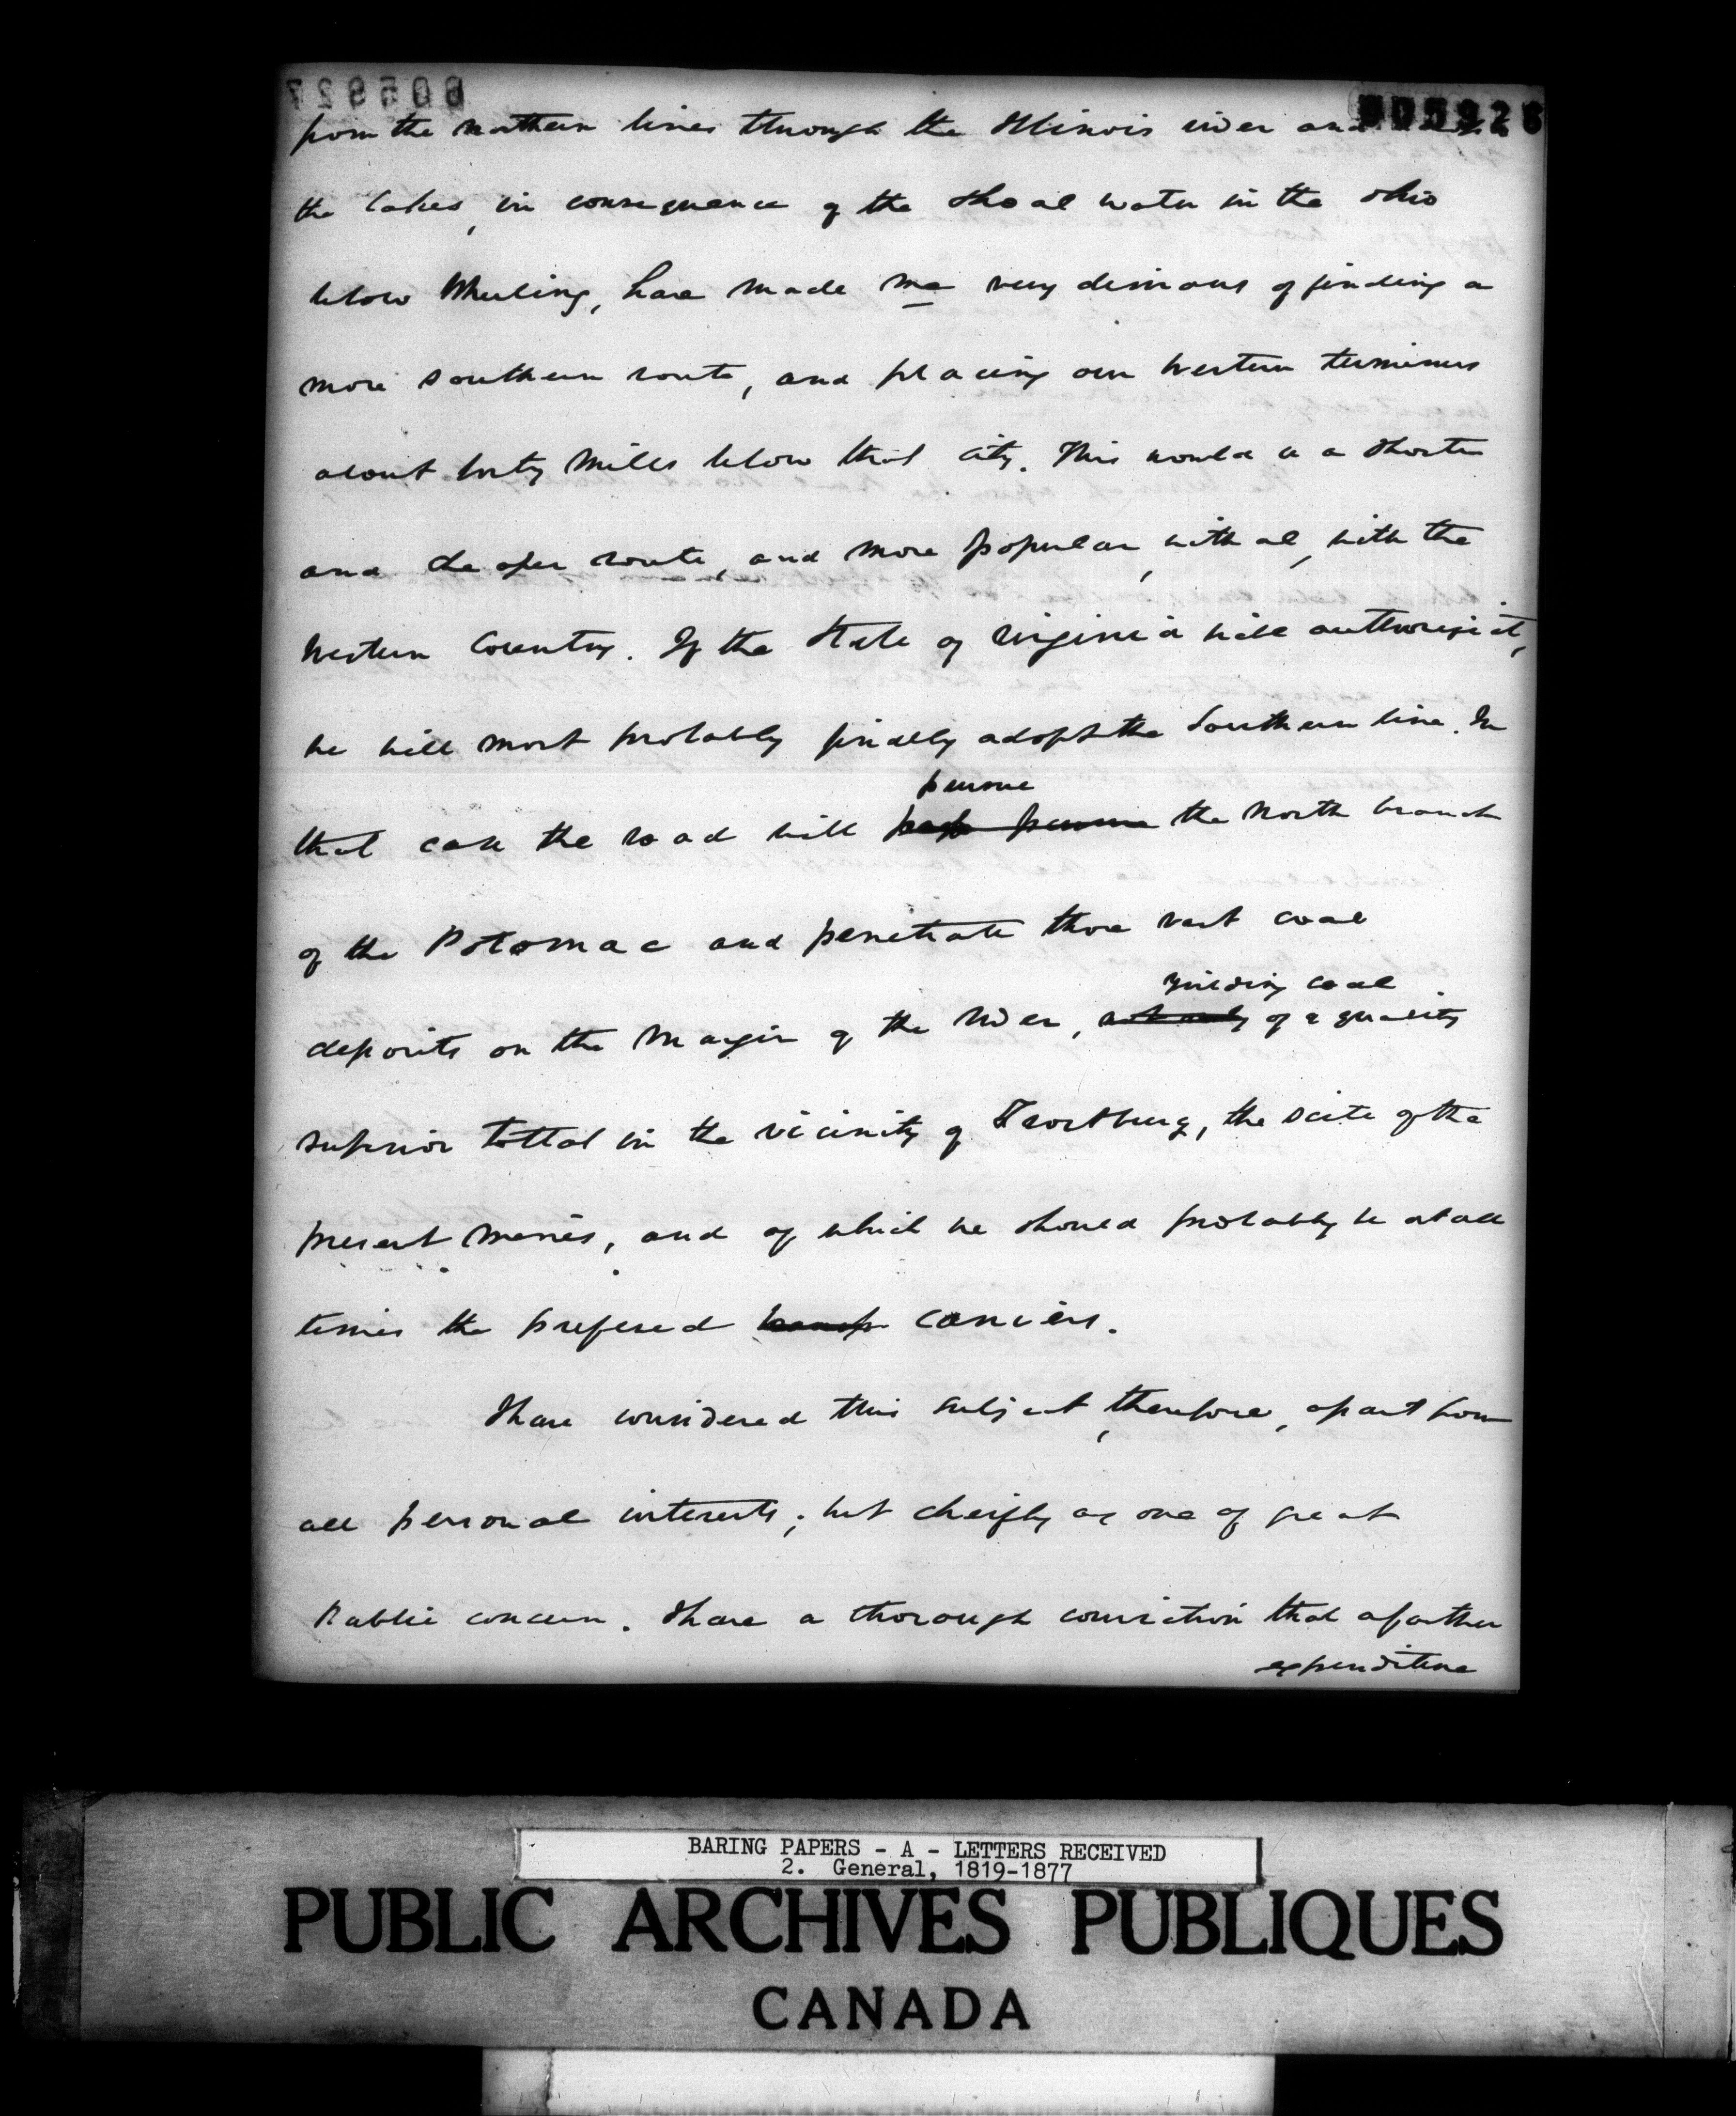 005928
from the northern lines through the Illinois river and
the lakes, in consequence of the shoal water in the Ohio
below Wheeling, have made me very desirous of finding a
more southern route, and placing our Western terminus
about forty miles below that city. This would be a shorter
and cheaper route, and more popular, withal, with the
Western Country. If the State of Virginia will authorize it,
we will most probably finally adopt the Southern line. In
pursue
that case the road will pursue the North branch
of the Potomac and penetrate those vast coal
yielding coal
deposits on the margin of the river, of a quality
superior to that in the vicinity of Frostburg, the scite of the
present mines, and of which we should probably be at all
times the prefered carriers.
I have considered this subject, therefore, apart from
all personal interests; but cheifly as one of great
Public concern. I have a thorough conviction that a farther
expenditure
BARING PAPERS - A - LETTERS RECEIVED
2. General, 1819-1877
PUBLIC ARCHIVES PUBLIQUES
CANADA